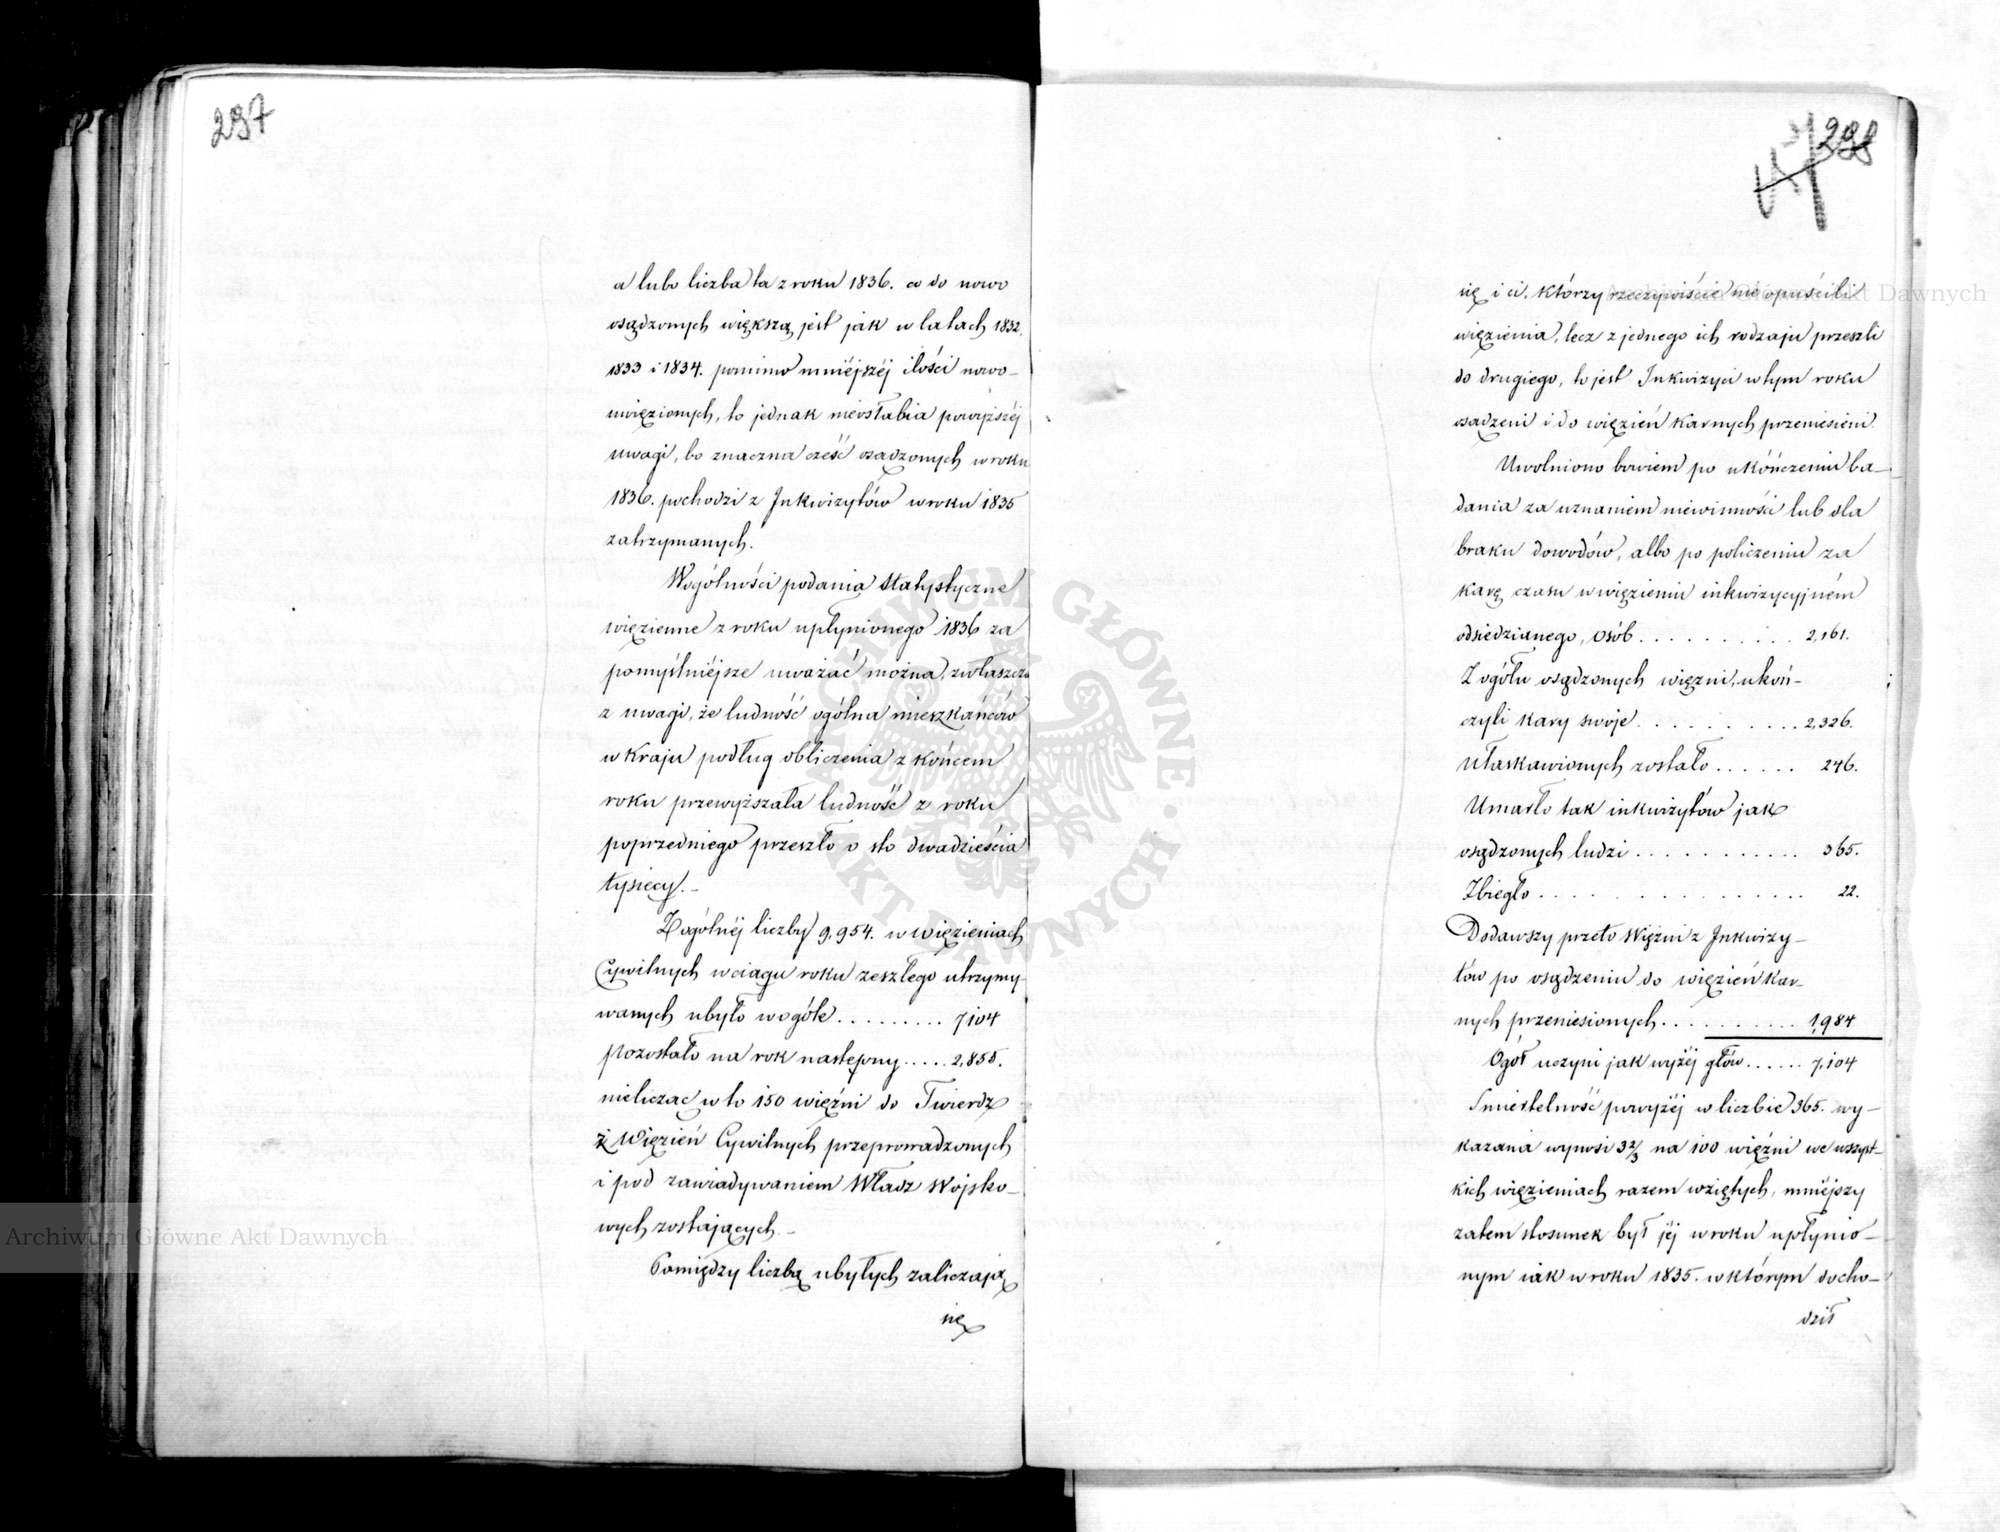 297
a lubo liczba ta z roku 1836. co do nowo
osądzonych większą jest jak w latach 1832.
1833 i 1834. pomimo mniéjszéj ilości nowo-
uwięzionych, to jednak nieosłabia powyższéj
uwagi, bo znaczna cześć osadzonych w roku
1836. pochodzi z Inkwizytów w roku 1835
zatrzymanych.
Wogólności podania statystyczne
więzienne z roku upłynionego 1836 za
pomyślniéjsze uważać można, zwłaszcza
z uwagi, że ludność ogólna mieszkańców
w Kraju podług obliczenia z końcem
roku przewyższała ludność z roku
poprzedniego przeszło o sto dwadzieścia
tysięcy.-
Z ogólnéj liczby 9,954. w więzieniach
Cywilnych w ciągu roku zeszłego utrzymy-
wanych ubyło wogóle . . . . . . . . . 7104
pozostało na rok następny . . . . . 2,855.
nieliczac w to 150 więźni do Twierdz
z Więzień Cywilnych przeprowadzonych
i pod zawiadywaniem Władz Wojsko-
wych zostających.-
Pomiędzy liczbą ubyłych zaliczają
się
298
się i ci, którzy rzeczywiście nie opuścili
więzienia, lecz z jednego ich rodzaju przeszli
do drugiego, to jest Inkwizyci w tym roku
osadzeni i do więzień karnych przeniesieni.
Uwolniono bowiem po ukończeniu ba-
dania za uznaniem niewinności lub dla
braku dowodów, albo po policzeniu za
karę czasu w więzieniu inkwizycyjném
odsiedzianego, osób . . . . . . . . . . 2,161.
Z ogółu osądzonych więzni, ukoń-
czyli kary swoje . . . . . . . . . . 2,326.
Ułaskawionych zostało . . . . . . 246.
Umarło tak inkwizytów jak
osądzonych ludzi . . . . . . . . . . . 365.
Zbiegło . . . . . . . . . . . . . . . . 22.
Dodawszy przeto Więźni z Inkwizy-
tów po osądzeniu do więzień kar-
nych przeniesionych . . . . . . . . . . 1,984
Ogół uczyni jak wyżéj głów . . . . . . 7,104
Smiertelność powyżéj w liczbie 365. wy-
kazana wynosi 3 2/3 na 100 więźni we wszyst-
kich więzieniach razem wziętych, mniéjszy
zatem stosunek był jéj w roku upłynio-
nym iak w roku 1835. w którym docho-
dził
Archiwum Główne Akt Dawnych
Archiwum Główne Akt Dawnych
ARCHIWUM GŁÓWNE AKT DAWNYCH